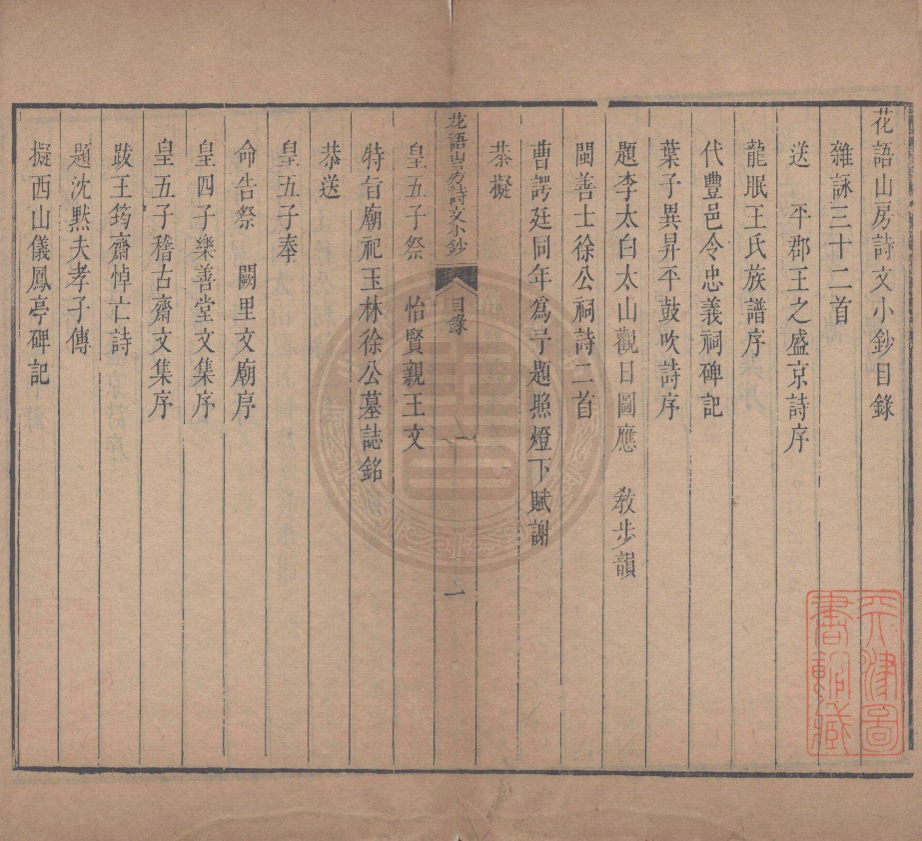 花語山房詩文小鈔目錄
雜詠三十二首
送　平郡王之盛京詩序
龍眠王氏族譜序
代豐邑令忠義祠碑記
葉子異昇平鼓吹詩序
題李太白太山觀日圖應　敎步韻
閩善士徐公祠詩二首
曹諤廷同年爲予題照燈下賦謝
恭擬
花語山房詩文小鈔　目錄　一
皇五子祭　怡賢親王文
特旨廟祀玉林徐公墓誌銘
恭送
皇五子奉
命告祭　闕里文廟序
皇四子樂善堂文集序
皇五子稽古齋文集序
跋王筠齋悼亡詩
題沈默夫孝子傳
擬西山儀鳳亭碑記
天津圖
書館藏